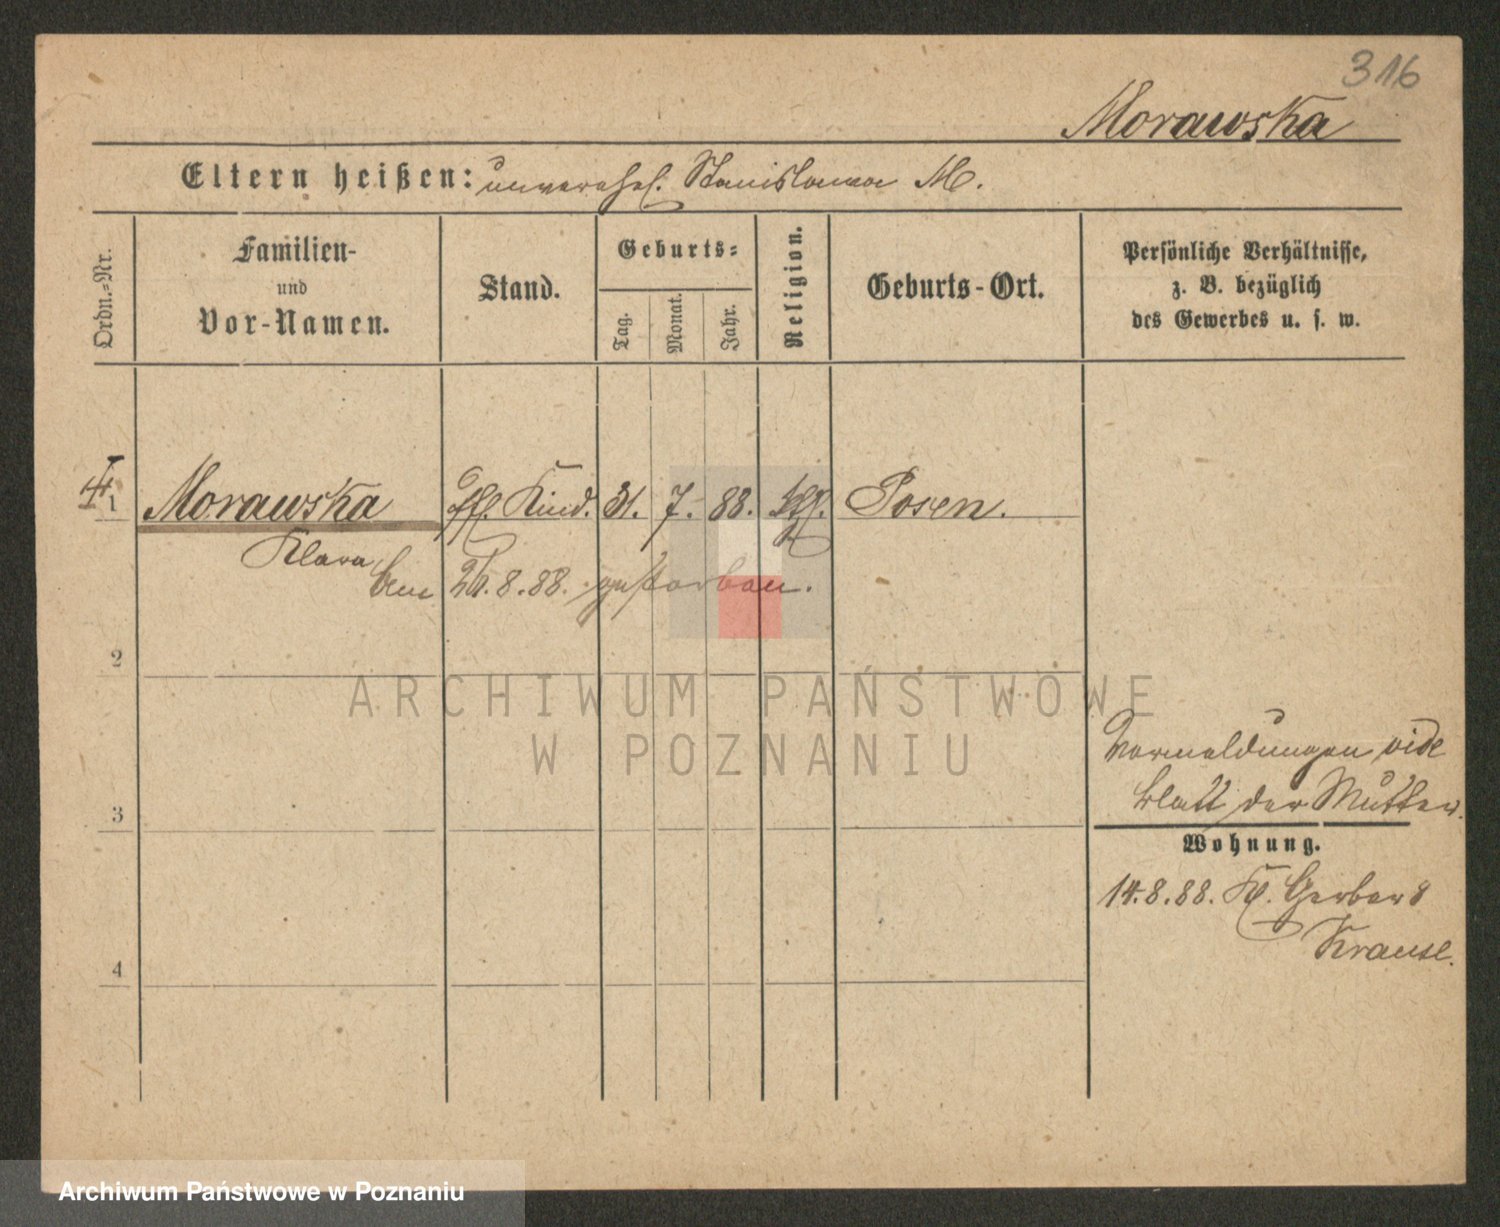 316
Morawska
Eltern heißen: unverehel. Stanislawa M.
Ordn.=Nr.
Familien-
und
Vor-Namen.
Stand.
Geburts=
Tag.
Monat.
Jahr.
Religion.
Geburts-Ort.
Persönliche Verhältnisse,
z. B. bezüglich
des Gewerbes u. s. w.
1 Morawska Kind. 31. 7. 88. kth. Posen.
Klara
8.88. gestorben.
2
ARCHIWUM PAŃSTWOWE
W POZNANIU
Vermeldungen vide
blatt der Mutter.
3
Wohnung.
14.8.88. Kl. Gerber 8
Krause.
4
Archiwum Państwowe w Poznaniu